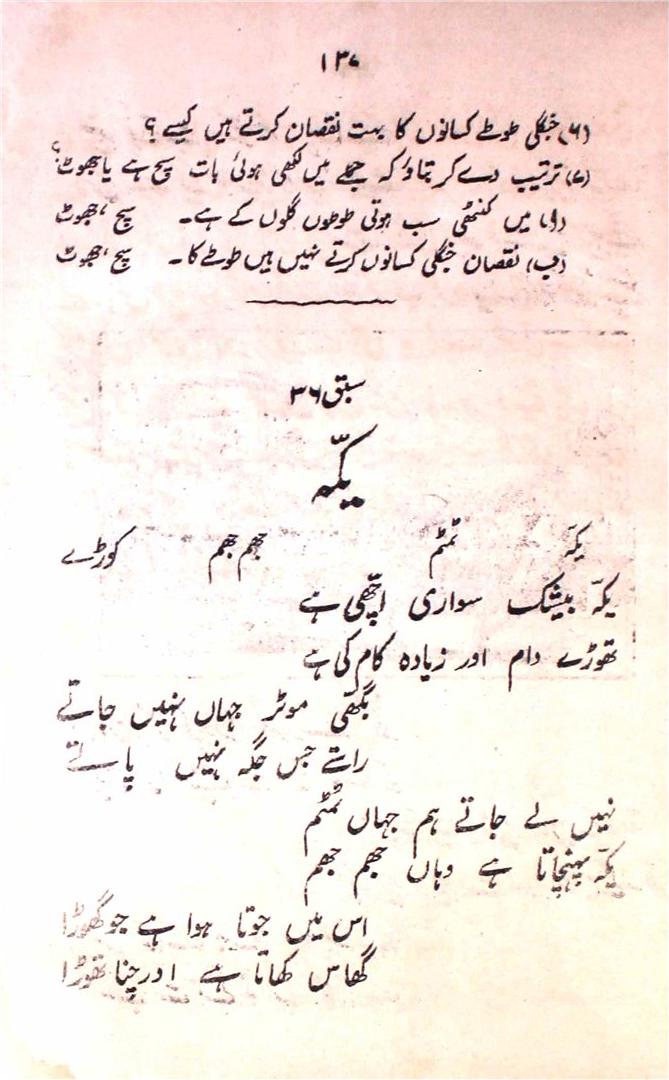 ۱۳۷
(۶) جنگلی طوطے کسانوں کا بہت نقصان کرتے ہیں کیسے؟
(۷) ترتیب دے کر بتاؤ کہ جملے میں لکھی ہوئی بات سچ ہے یا جھوٹ؟
(ا) میں کنٹھی سب ہوتی طوطوں گلوں کے ہے۔ سچ، جھوٹ
(ب) نقصان جنگلی کسانوں کرتے نہیں ہیں طوطے کا۔ سچ، جھوٹ
سبق ۳۶
یکّہ
یکّہ ٹمٹم جھم جھم کوڑے
یکّہ بیشک سواری اچّھی ہے
تھوڑے دام اور زیادہ کام کی ہے
بگّھی موٹر جہاں نہیں جاتے
راستے جس جگہ نہیں پاتے
نہیں لے جاتے ہم جہاں ٹمٹم
یکّہ پہنچاتا ہے وہاں جھم جھم
اس میں جوتا ہوا ہے جو گھوڑا
گھاس کھاتا ہے اور چنا تھوڑا